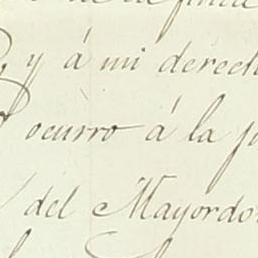 y á mi derech
ocurro á la p
del Mayordo